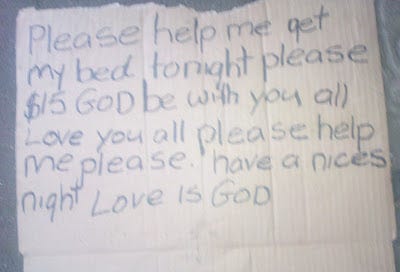 Please help me get
my bed tonight please
$15 GOD be with you all
Love you all please help
me please. have a nices
night Love Is GOD